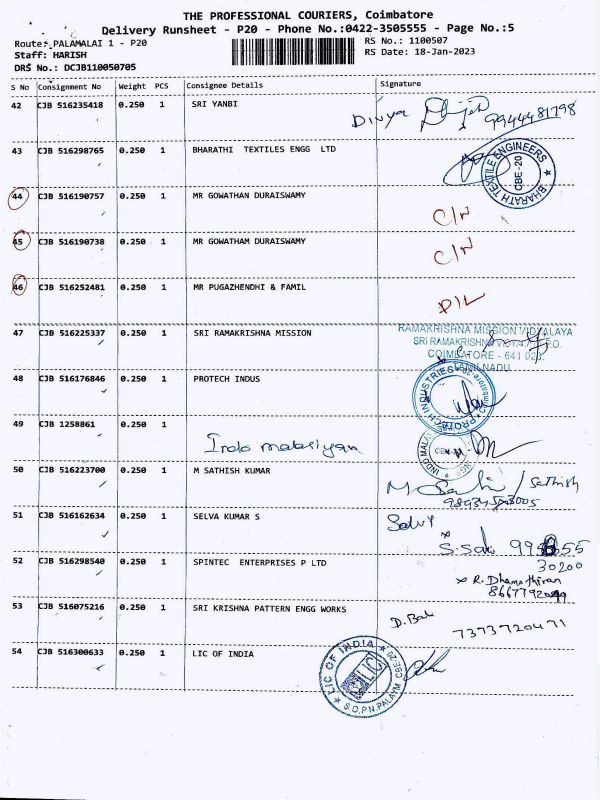 THE PROFESSIONAL COURIERS, Coimbatore
Delivery Runsheet - P20 - Phone No.:0422-3505555 - Page No.:5
Route: PALAMALAI 1 - P20 RS No.: 1100507
Staff: HARISH RS Date: 18-Jan-2023
DRS No.: DCJB110050705
S No Consignment No Weight PCS Consignee Details Signature
42 CJB 516235418 0.250 1 SRI YANBI
Divya 9944481798
43 CJB 516298765 0.250 1 BHARATHI TEXTILES ENGG LTD
BHARATH TEXTILE ENGINEERS CBE-20
44 CJB 516190757 0.250 1 MR GOWATHAN DURAISWAMY
C/N
45 CJB 516190738 0.250 1 MR GOWATHAM DURAISWAMY
C/N
46 CJB 516252481 0.250 1 MR PUGAZHENDHI & FAMIL
D/L
47 CJB 516225337 0.250 1 SRI RAMAKRISHNA MISSION
RAMAKRISHNA MISSION VIDYALAYA
SRI RAMAKRISHNA VIDYALAYA P.O.
COIMBATORE - 641 020.
TAMILNADU
48 CJB 516176846 0.250 1 PROTECH INDUS
PROTECH INDUSTRIES Coimbatore
49 CJB 1258861 0.250 1
Indo malasiyan
INDO MALAS
50 CJB 516223700 0.250 1 M SATHISH KUMAR
Sathish
51 CJB 516162634 0.250 1 SELVA KUMAR S
Selvy
30200
52 CJB 516298540 0.250 1 SPINTEC ENTERPRISES P LTD
x R. Dhamothiran
53 CJB 516075216 0.250 1 SRI KRISHNA PATTERN ENGG WORKS
D. Bal
7373720471
54 CJB 516300633 0.250 1 LIC OF INDIA
LIC OF INDIA LIC CBE-20 S.O.P.N.PALAYM